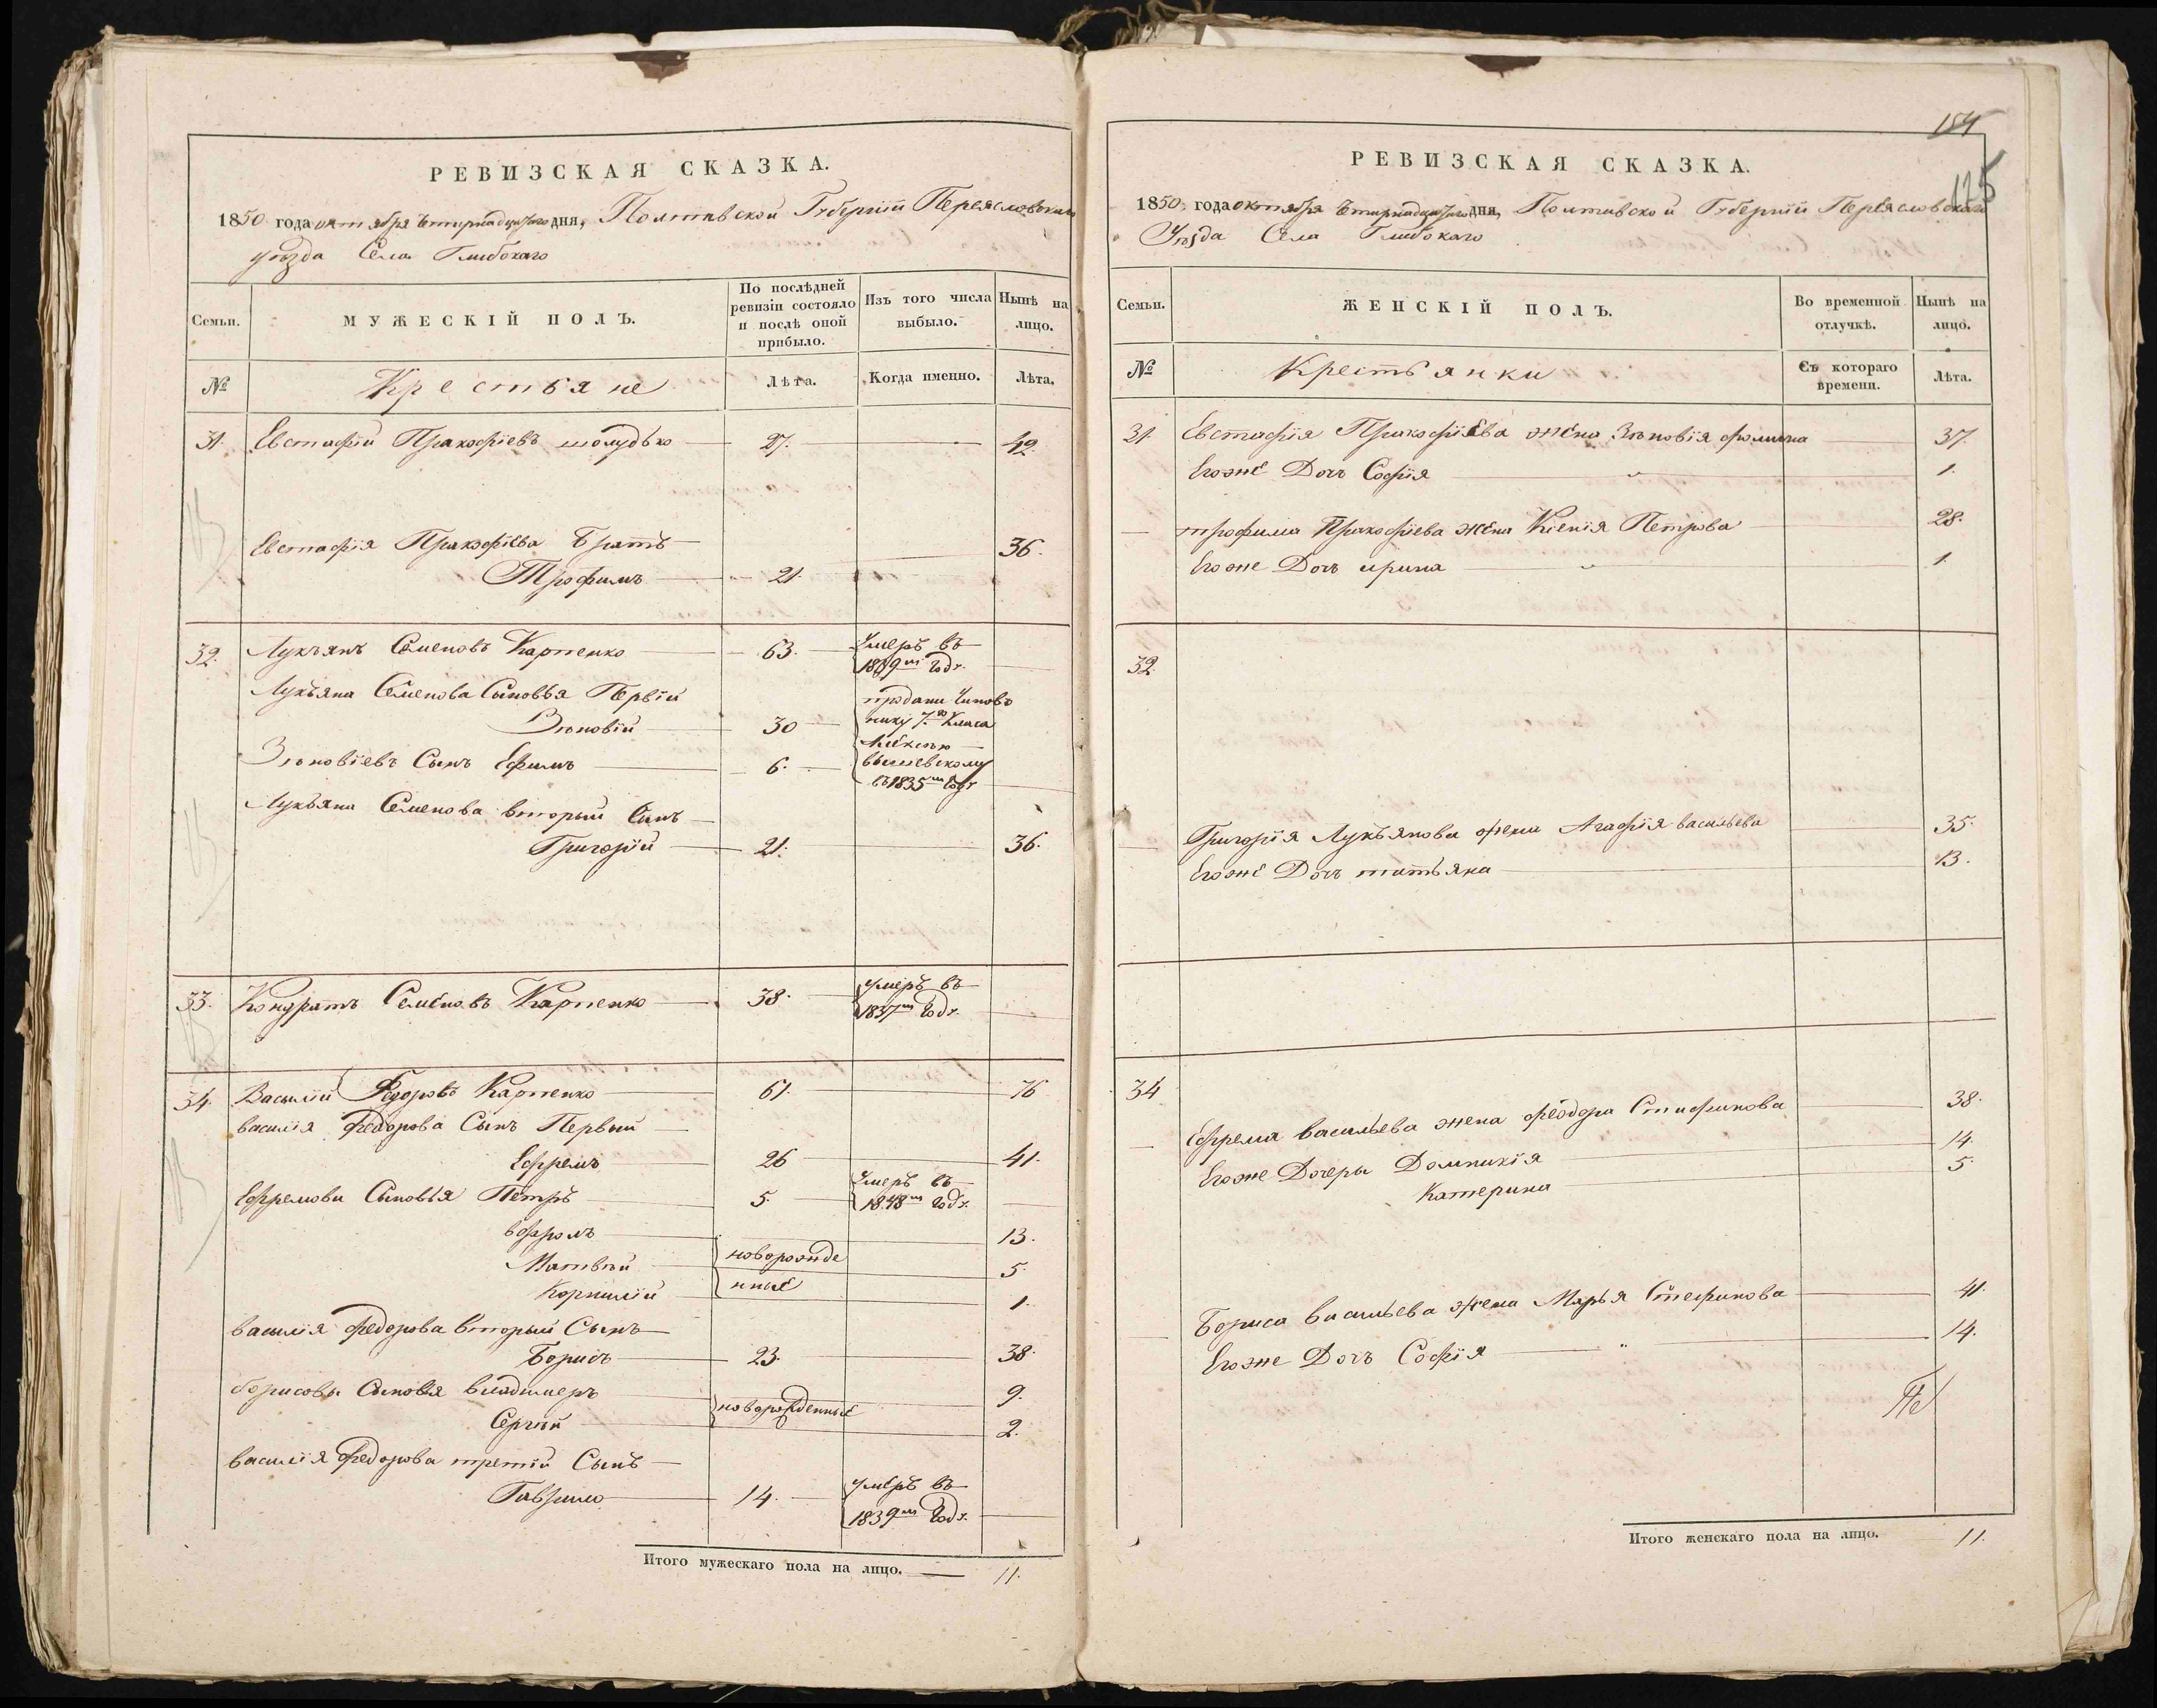 РЕВИЗСКАЯ СКАЗКА.
1850 года октября дня, Полтавской Губернiи Переясловскаго
уѣзда Села Глибокаго
Семьи. МУЖЕСКІЙ ПОЛЪ. По послѣдней ревизіи состояло и послѣ оной прибыло. Изъ того числа выбыло. Нынѣ на лицо.
№ Крестьяне Лѣта. Когда именно. Лѣта.
31. Евстафій Пракофіевъ шолудько 27. 42.
Евстафія Пракофіева Братъ 36.
Трофимъ 21.
32. Лукъянъ Семеновъ Карпенко 63. Умеръ въ
годѣ
Лукъяна Семенова Сыновья Первій проданы Чинов
Зѣновій 30 нику 7го Класа
Зѣновіевъ Сынъ Ефимъ 6.
въ 1835м годѣ
Лукъяна Семенова вторый Сынъ
Григорій 21. 36.
33. Кондратъ Семеновъ Карпенко 38. умеръ въ
1837м годѣ.
34. Василій Федоровъ Карпенко 61. 76
Василія Федорова Сынъ Первый
Ефремъ 26 41.
Ефремовы Сыновья Петръ 5. Умеръ въ
1848м годѣ.
13.
Матвѣй новорожде 5.
Корнилій нные 1.
Василія Федорова вторый Сынъ
Борисъ 23. 38.
Борисовы Сыновья владимеръ 9.
Сергѣй новорожденные 2.
Василія Федорова третій Сынъ
Гаврило 14. умеръ въ
1839м годѣ.
Итого мужескаго пола на лицо. 11.
154
125
РЕВИЗСКАЯ СКАЗКА.
1850. года октября дня, Полтавской Губерніи Переясловскаго
Уѣзда Села Глибокаго
Семьи. ЖЕНСКІЙ ПОЛЪ. Во временной отлучкѣ. Нынѣ на лицо.
№ Крестьянки Съ котораго времени. Лѣта.
31. Евстафія Пракофіева жена Зѣновія фомина 37.
Егоже Дочъ Софія " 1.
трофима Пракофіева жена Ксенія Петрова 28.
Егоже Дочъ ирина " 1.
32.
Григорія Лукъянова жена Агафія васильева 35.
Егоже Дочъ татьяна 13.
34
Ефрема васильева жена феодора Стефанова 38.
Егоже Дочеры Домникія 14.
Катерина 5.
Бориса васильева жена Марья Стефанова 41.
Егоже Дочъ Софія " 14.
Итого женскаго пола на лицо. 11.